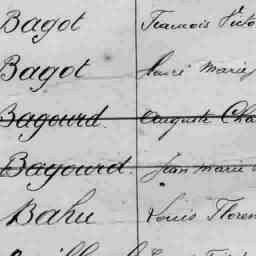 Bagot François Victo
Bagot Henri Marie
Bagourd Auguste Cha
Bagourd Jean Marie
Bahu Louis Floren